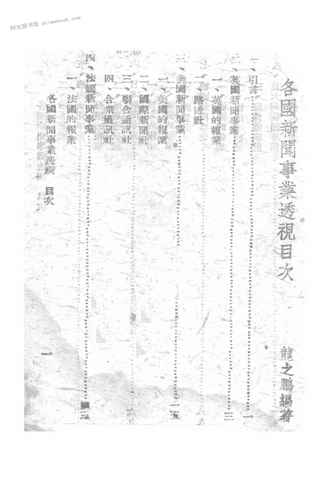 各國新聞事業透視目次
龍之鵬編著
一、引言 一
二、英國新聞事業 三
一、英國的報業
二、路透社
三、美國新聞事業 一五
一、美國的報業
二、國際新聞社
三、聯合通訊社
四、合眾通訊社
四、法國新聞事業
一、法國的報業
各國新聞事業透視 目次
一